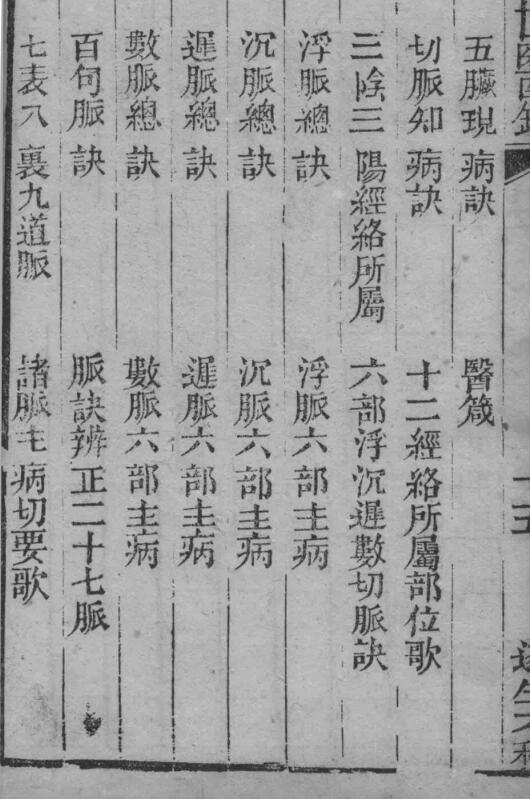 五臟現病訣 醫箴
切脈知病訣 十二經絡所屬部位歌
三陰三陽經絡所屬 六部浮沉遲數切脈訣
浮脈總訣 浮脈六部主病
沉脈總訣 沉脈六部主病
遲脈總訣 遲脈六部主病
數脈總訣 數脈六部主病
百句脈訣 脈訣辨正二十七脈
七表八裏九道脈 諸脈主病切要歌